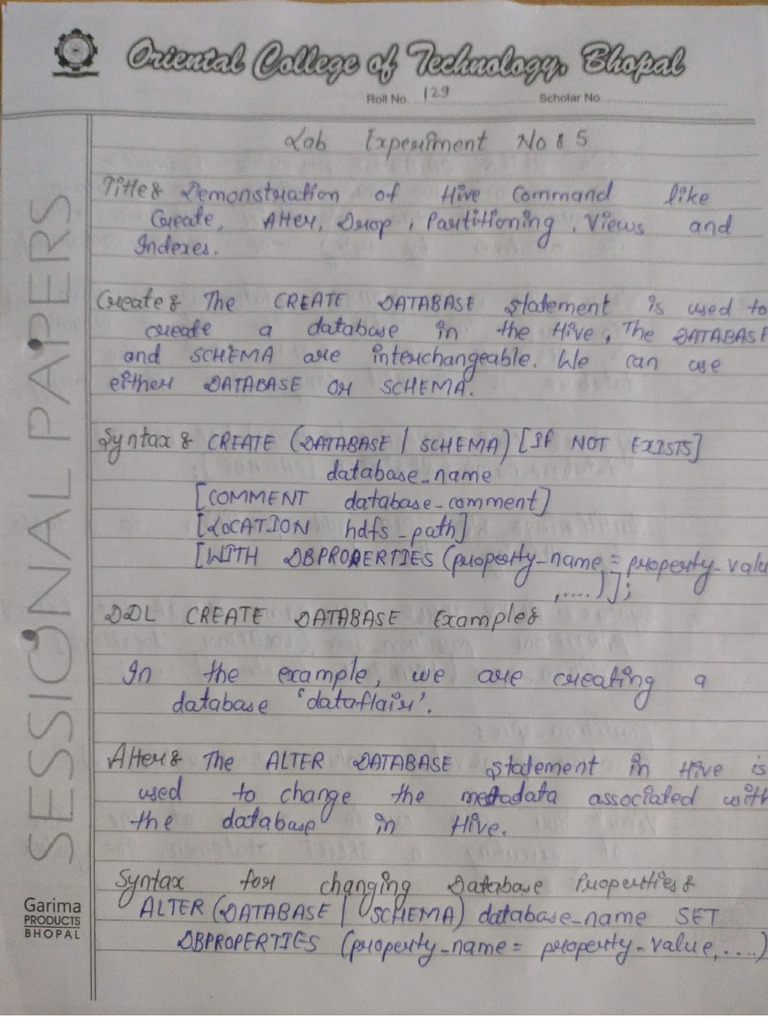 Oriental College of Technology, Bhopal
Roll No. 129 Scholar No.
Lab Experiment No : 5
Title : Demonstration of Hive Command like
Create, Alter, Drop, Partitioning, Views and
Indexes.
Create : The CREATE DATABASE statement is used to
create a database in the Hive, The DATABASE
and SCHEMA are interchangeable. We can use
either DATABASE or SCHEMA.
Syntax : CREATE (DATABASE | SCHEMA) [IF NOT EXISTS]
database_name
[COMMENT database_comment]
[LOCATION hdfs_path]
[WITH DBPROPERTIES (property-name = property-value
,....)];
DDL CREATE DATABASE Example :
In the example, we are creating a
database 'dataflair'.
Alter : The ALTER DATABASE statement in Hive is
used to change the metadata associated with
the database in Hive.
Syntax for changing Database Properties :
ALTER (DATABASE | SCHEMA) database_name SET
DBPROPERTIES (property-name = property-value,....)
SESSIONAL PAPERS
Garima
PRODUCTS
BHOPAL